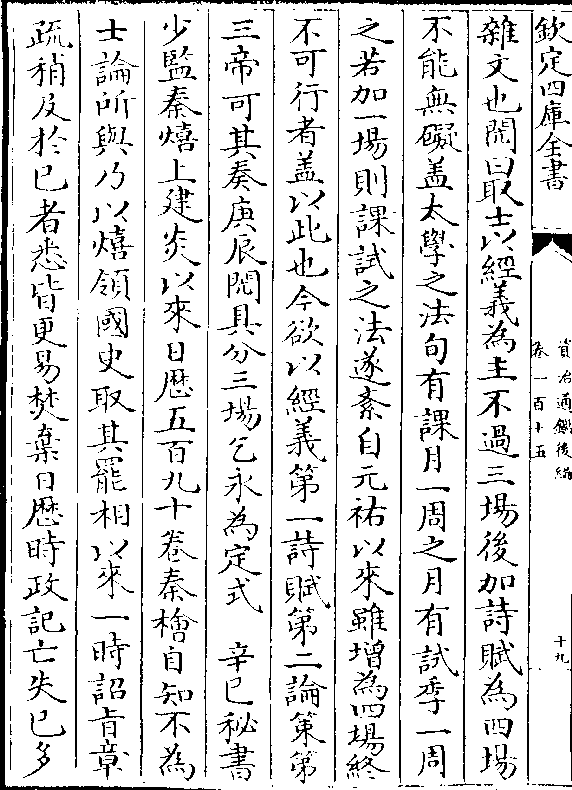 欽定四庫全書
資治通鑑後編
卷一百十五
十九
雜文也閱曰取士以經義為主不過三場後加詩賦為四場
不能無礙蓋太學之法句有課月一周之月有試季一周
之若加一場則課試之法遂紊自元祐以來雖增為四場終
不可行者蓋以此也今欲以經義第一詩賦第二論策第
三帝可其奏庚辰閱具分三場乞永為定式　辛巳秘書
少監秦熺上建炎以來日歷五百九十卷秦檜自知不為
士論所與乃以熺領國史取其罷相以來一時詔旨章
疏稍及於已者悉皆更易焚棄日歷時政記亡失已多